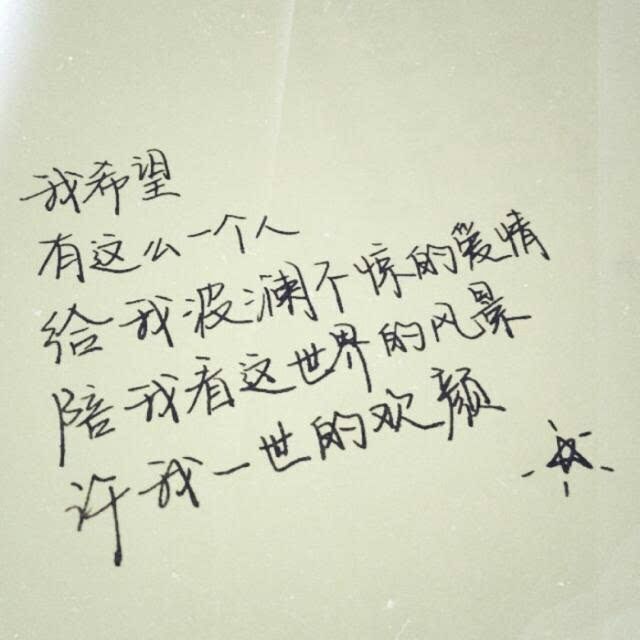 我希望
有这么一个人
给我波澜不惊的爱情
陪我看这世界的风景
许我一世的欢颜